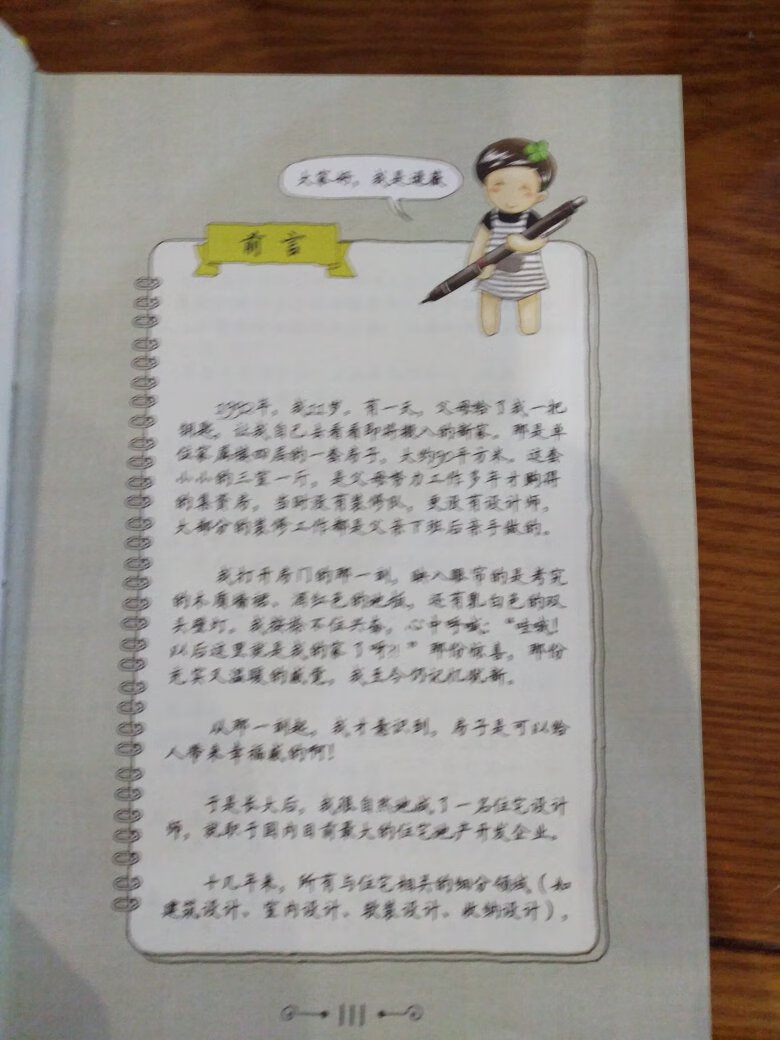 大家好，我是逯薇
前言
1992年，我11岁。有一天，父母给了我一把
钥匙，让我自己去看看即将搬入的新家。那是单
位家属楼四层的一套房子，大约90平方米。这套
小小的三室一厅，是父母努力工作多年才购得
的集资房，当时没有装修队，更没有设计师，
大部分的装修工作都是父亲下班后亲手做的。
我打开房门的那一刻，映入眼帘的是考究
的木质墙裙、深红色的地板，还有乳白色的双
头壁灯，我按捺不住兴奋，心中呼喊：“哇哦！
以后这里就是我的家了呀?！”那份惊喜，那份
充实又温暖的感觉，我至今仍记忆犹新。
从那一刻起，我才意识到，房子是可以给
人带来幸福感的啊！
于是长大后，我很自然地成了一名住宅设计
师，就职于国内目前最大的住宅地产开发企业。
十几年来，所有与住宅相关的细分领域（如
建筑设计、室内设计、软装设计、收纳设计），
III